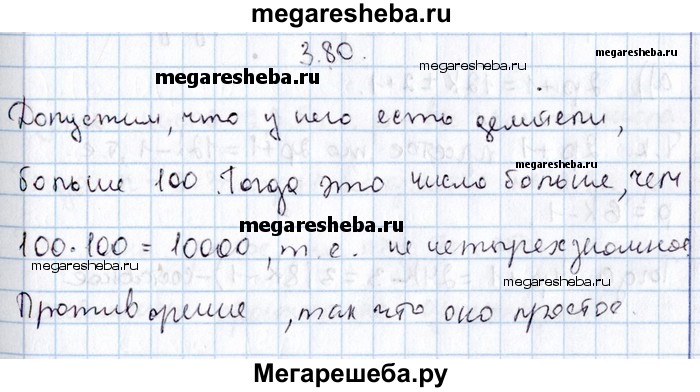 megaresheba.ru
3.80.
megaresheba.ru
megaresheba.ru
Допустим, что у него есть делители,
megaresheba.ru
больше 100. Тогда это число больше, чем
megaresheba.ru
100·100 = 10000, т.е. не четырехзначное
megaresheba.ru
megaresheba.ru
Противоречие, так что оно простое.
Мегарешеба.ру